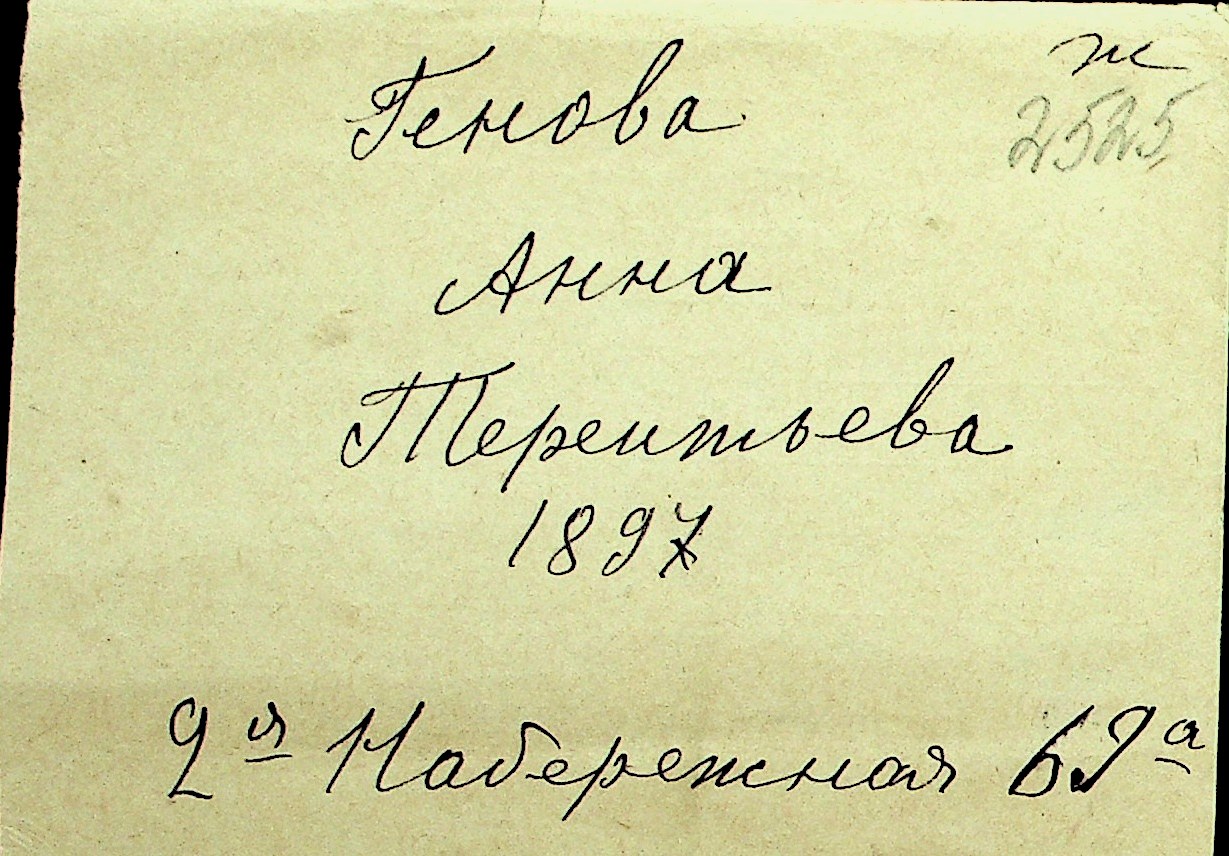 ж
2525
Генова
Анна
Терентьева
1897
2я Набережная 69а